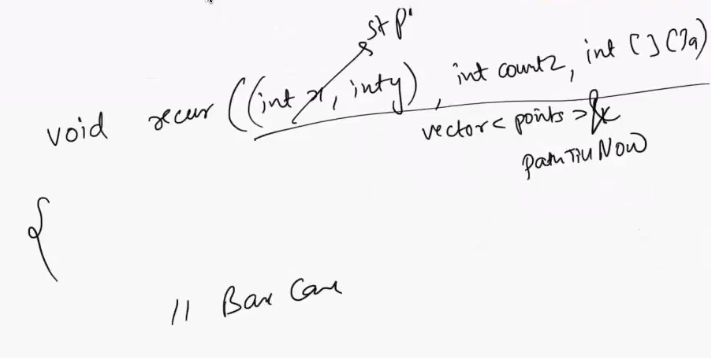 st p'
void recur ((int x, int y), int count2, int [] (?a)
vector< points >&
pathTillNow
{
// Base Case